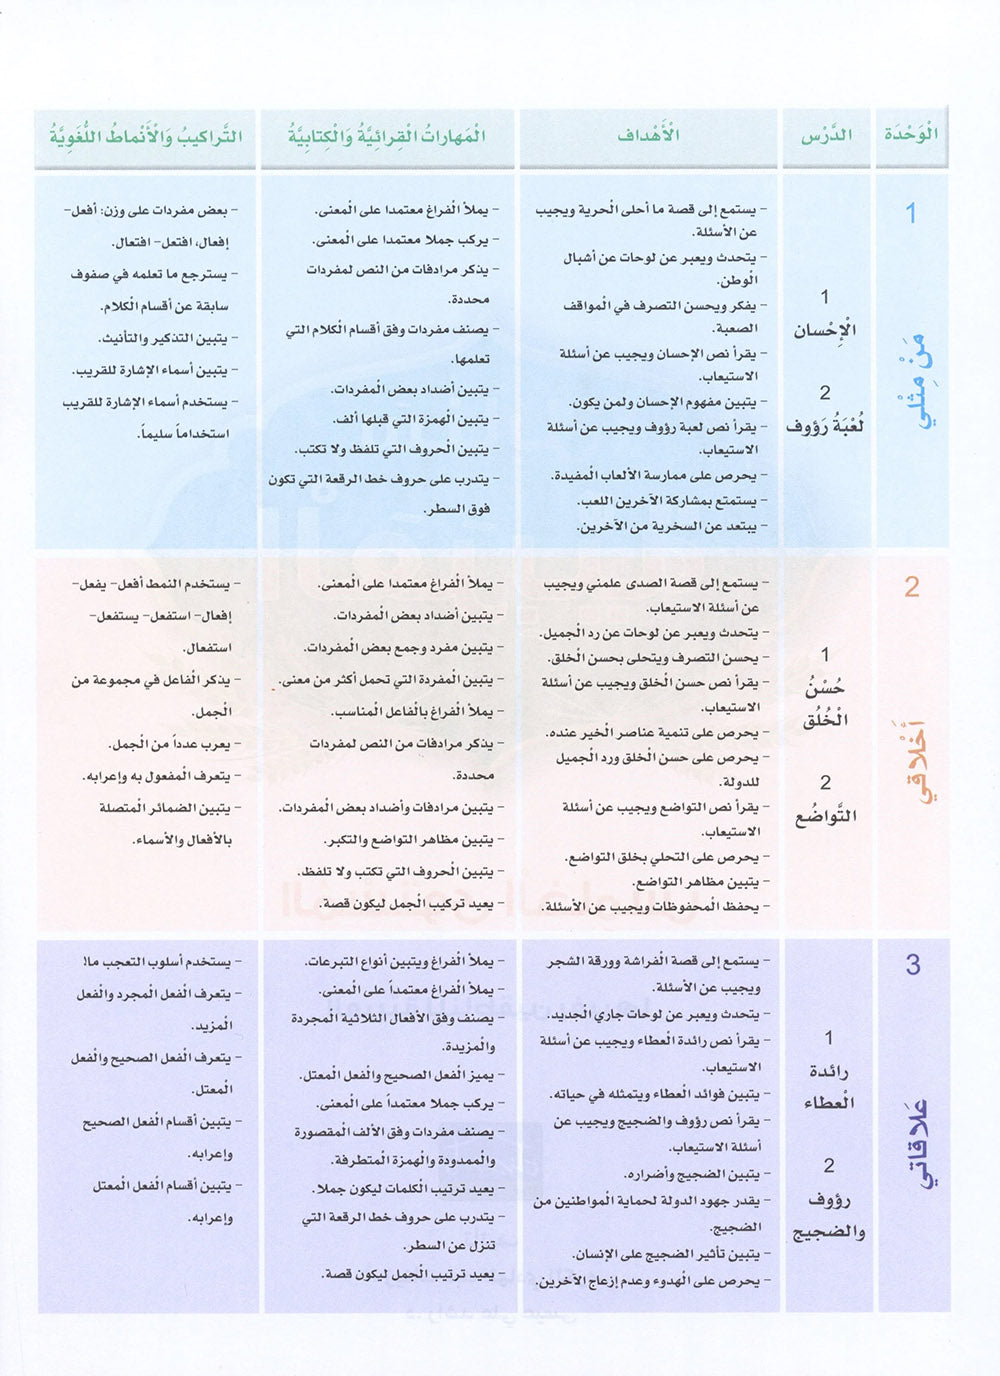 الْوَحْدَة
الدَّرْس
الْأَهْداف
الْمَهاراتُ الْقِرائيَّةُ وَالْكِتابِيَّةُ
التَّراكيبُ وَالْأَنْماطُ اللُّغَوِيَّةُ
1
مَنْ مِثْلي
1
الْإِحْسان
2
لُعْبَةُ رَؤُوف
- يستمع إلى قصة ما أحلى الحرية ويجيب
عن الأسئلة.
- يتحدث ويعبر عن لوحات عن أشبال
الْوطن.
- يفكر ويحسن التصرف في الْمواقف
الصعبة.
- يقرأ نص الإحسان ويجيب عن أسئلة
الاستيعاب.
- يتبين مفهوم الإحسان ولمن يكون.
- يقرأ نص لعبة رؤوف ويجيب عن أسئلة
الاستيعاب.
- يحرص على ممارسة الألعاب الْمفيدة.
- يستمتع بمشاركة الآخرين اللعب.
- يبتعد عن السخرية من الآخرين.
- يملأ الْفراغ معتمدا على الْمعنى.
- يركب جملا معتمدا على الْمعنى.
- يذكر مرادفات من النص لمفردات
محددة.
- يصنف مفردات وفق أقسام الْكلام التي
تعلمها.
- يتبين أضداد بعض الْمفردات.
- يتبين الْهمزة التي قبلها ألف.
- يتبين الْحروف التي تلفظ ولا تكتب.
- يتدرب على حروف خط الرقعة التي تكون
فوق السطر.
- بعض مفردات على وزن: أفعل-
إفعال، افتعل- افتعال.
- يسترجع ما تعلمه في صفوف
سابقة عن أقسام الْكلام.
- يتبين التذكير والتأنيث.
- يتبين أسماء الإشارة للقريب.
- يستخدم أسماء الإشارة للقريب
استخداماً سليماً.
2
أَخْلاقي
1
حُسْنُ
الْخُلُق
2
التَّواضُع
- يستمع إلى قصة الصدى علمني ويجيب
عن أسئلة الاستيعاب.
- يتحدث ويعبر عن لوحات عن رد الْجميل.
- يحسن التصرف ويتحلى بحسن الْخلق.
- يقرأ نص حسن الْخلق ويجيب عن أسئلة
الاستيعاب.
- يحرص على تنمية عناصر الْخير عنده.
- يحرص على حسن الْخلق ورد الْجميل
للدولة.
- يقرأ نص التواضع ويجيب عن أسئلة
الاستيعاب.
- يحرص على التحلي بخلق التواضع.
- يتبين مظاهر التواضع.
- يحفظ الْمحفوظات ويجيب عن الأسئلة.
- يملأ الْفراغ معتمدا على الْمعنى.
- يتبين أضداد بعض الْمفردات.
- يتبين مفرد وجمع بعض الْمفردات.
- يتبين الْمفردة التي تحمل أكثر من معنى.
- يملأ الْفراغ بالْفاعل الْمناسب.
- يذكر مرادفات من النص لْمفردات
محددة.
- يتبين مرادفات وأضداد بعض الْمفردات.
- يتبين مظاهر التواضع والتكبر.
- يتبين الْحروف التي تكتب ولا تلفظ.
- يعيد تركيب الْجمل ليكون قصة.
- يستخدم النمط أفعل- يفعل-
إفعال- استفعل- يستفعل-
استفعال.
- يذكر الْفاعل في مجموعة من
الْجمل.
- يعرب عدداً من الْجمل.
- يتعرف الْمفعول به وإعرابه.
- يتبين الضمائر الْمتصلة
بالأفعال والأسماء.
3
عَلاقاتي
1
رائدة
الْعطاء
2
رؤوف
والضجيج
- يستمع إلى قصة الْفراشة وورقة الشجر
ويجيب عن الأسئلة.
- يتحدث ويعبر عن لوحات جاري الْجديد.
- يقرأ نص رائدة الْعطاء ويجيب عن أسئلة
الاستيعاب.
- يتبين فوائد الْعطاء ويتمثله في حياته.
- يقرأ نص رؤوف والضجيج ويجيب عن
أسئلة الاستيعاب.
- يتبين الضجيج وأضراره.
- يقدر جهود الدولة لحماية الْمواطنين من
الضجيج.
- يتبين تأثير الضجيج على الإنسان.
- يحرص على الْهدوء وعدم إزعاج الآخرين.
- يملأ الْفراغ ويتبين أنواع التبرعات.
- يملأ الْفراغ معتمداً على الْمعنى.
- يصنف وفق الأفعال الثلاثية الْمجردة
والْمزيدة.
- يميز الْفعل الصحيح والْفعل الْمعتل.
- يركب جملا معتمداً على الْمعنى.
- يصنف مفردات وفق الألف الْمقصورة
والْممدودة والْهمزة الْمتطرفة.
- يعيد ترتيب الْكلمات ليكون جملا.
- يتدرب على حروف خط الرقعة التي
تنزل عن السطر.
- يعيد ترتيب الْجمل ليكون قصة.
- يستخدم أسلوب التعجب ما!
- يتعرف الْفعل الْمجرد والْفعل
الْمزيد.
- يتعرف الْفعل الصحيح والْفعل
الْمعتل.
- يتبين أقسام الْفعل الصحيح
وإعرابه.
- يتبين أقسام الْفعل الْمعتل
وإعرابه.